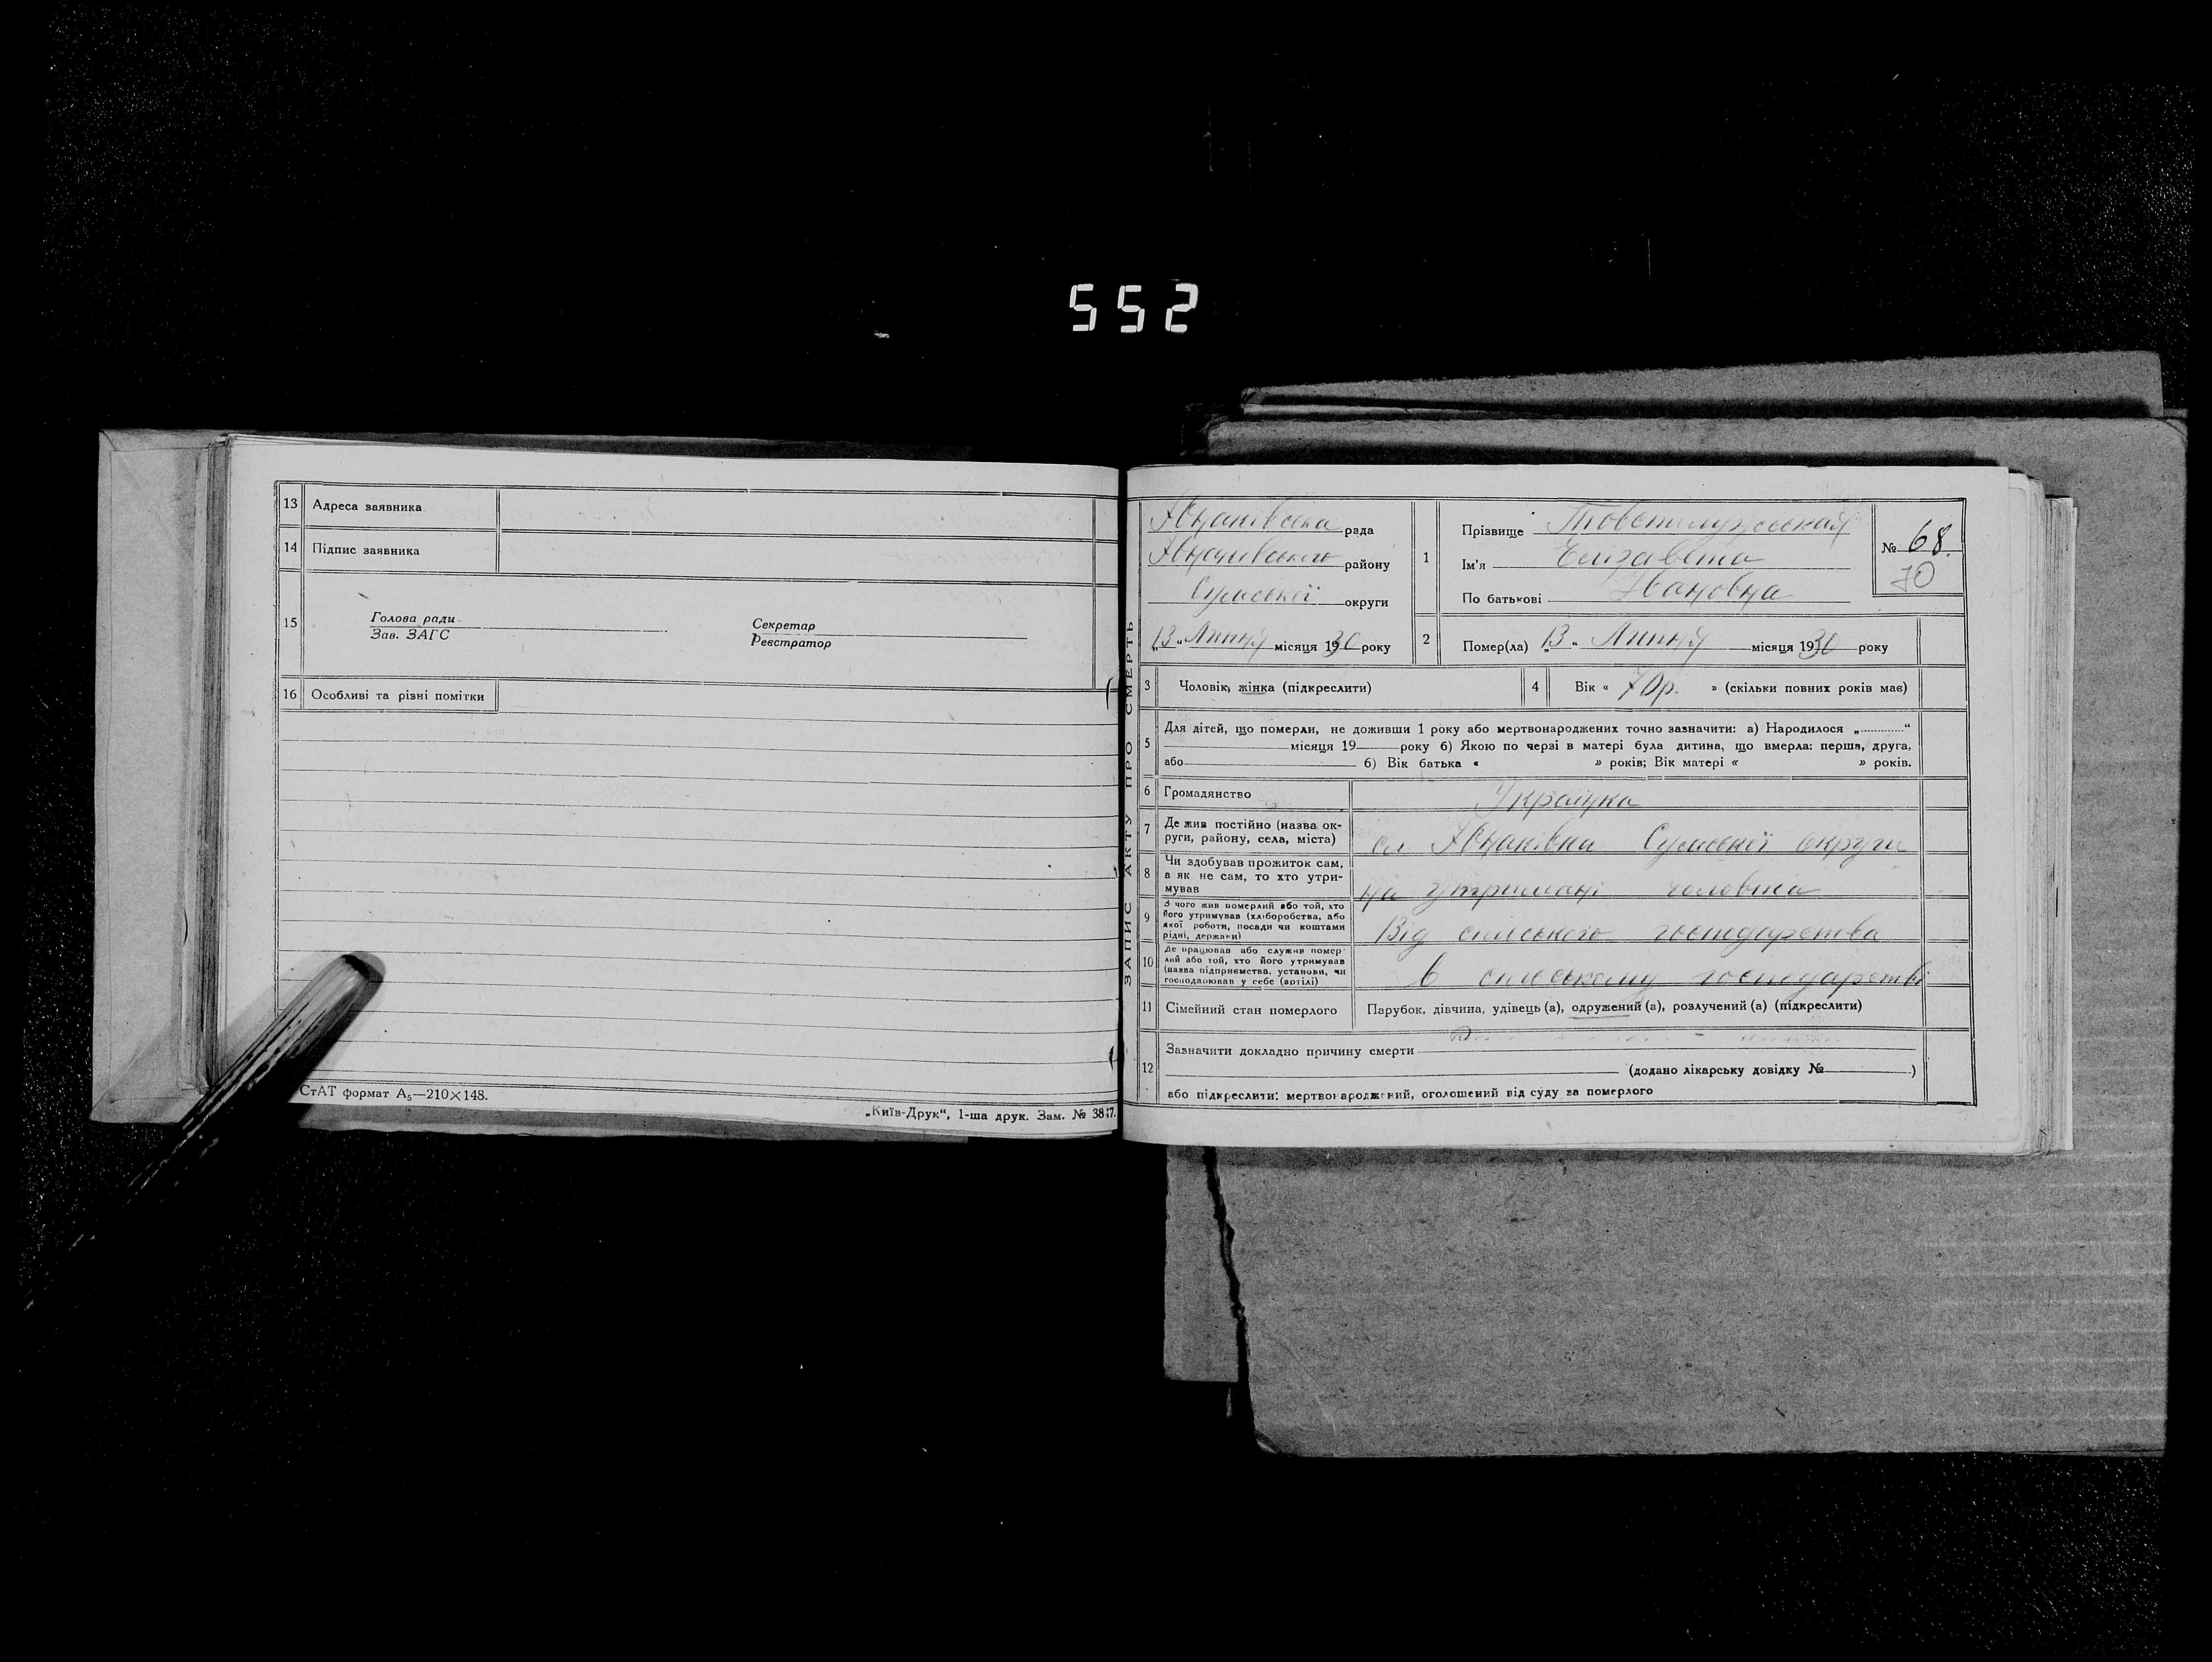 552
13 Адреса заявника
14 Підпис заявника
15 Голова ради
Зав. ЗАГС
Секретар
Реєстратор
16 Особливі та різні помітки
СтАТ формат А₅—210×148.
„Київ-Друк“, 1-ша друк. Зам. №
ЗАПИС АКТУ ПРО СМЕРТЬ
Юнаківська рада
Юнаківського району
Сумської округи
„13“ Липня місяця 1930 року
1 Прізвище
Ім'я Елізавета
По батькові Івановна
№ 68.
70
2 Помер(ла) „13“ Липня місяця 1930 року
3 Чоловік, жінка (підкреслити)
4 Вік « 70р. » (скільки повних років має)
5 Для дітей, що померли, не доживши 1 року або мертвонароджених точно зазначити: а) Народилося „ “
місяця 19 року б) Якою по черзі в матері була дитина, що вмерла: перша, друга,
або б) Вік батька « » років; Вік матері « » років.
6 Громадянство Українка
7 Де жив постійно (назва ок-
руги, району, села, міста) сл Юнаківка Сумської округи
8 Чи здобував прожиток сам,
а як не сам, то хто утри-
мував на утримані чоловіка
9 З чого жив померлий або той, хто
його утримував (хліборобства, або
якої роботи, посади чи коштами
рідні, держави) Від сільського господарства
10 Де працював або служив помер-
лий або той, хто його утримував
(назва підприємства, установи, чи
господарював у себе (артілі) в сільському господарстві
11 Сімейний стан померлого Парубок, дівчина, удівець (а), одружений (а), розлучений (а) (підкреслити)
12 Зазначити докладно причину смерти
(додано лікарську довідку № )
або підкреслити: мертвонароджений, оголошений від суду за померлого